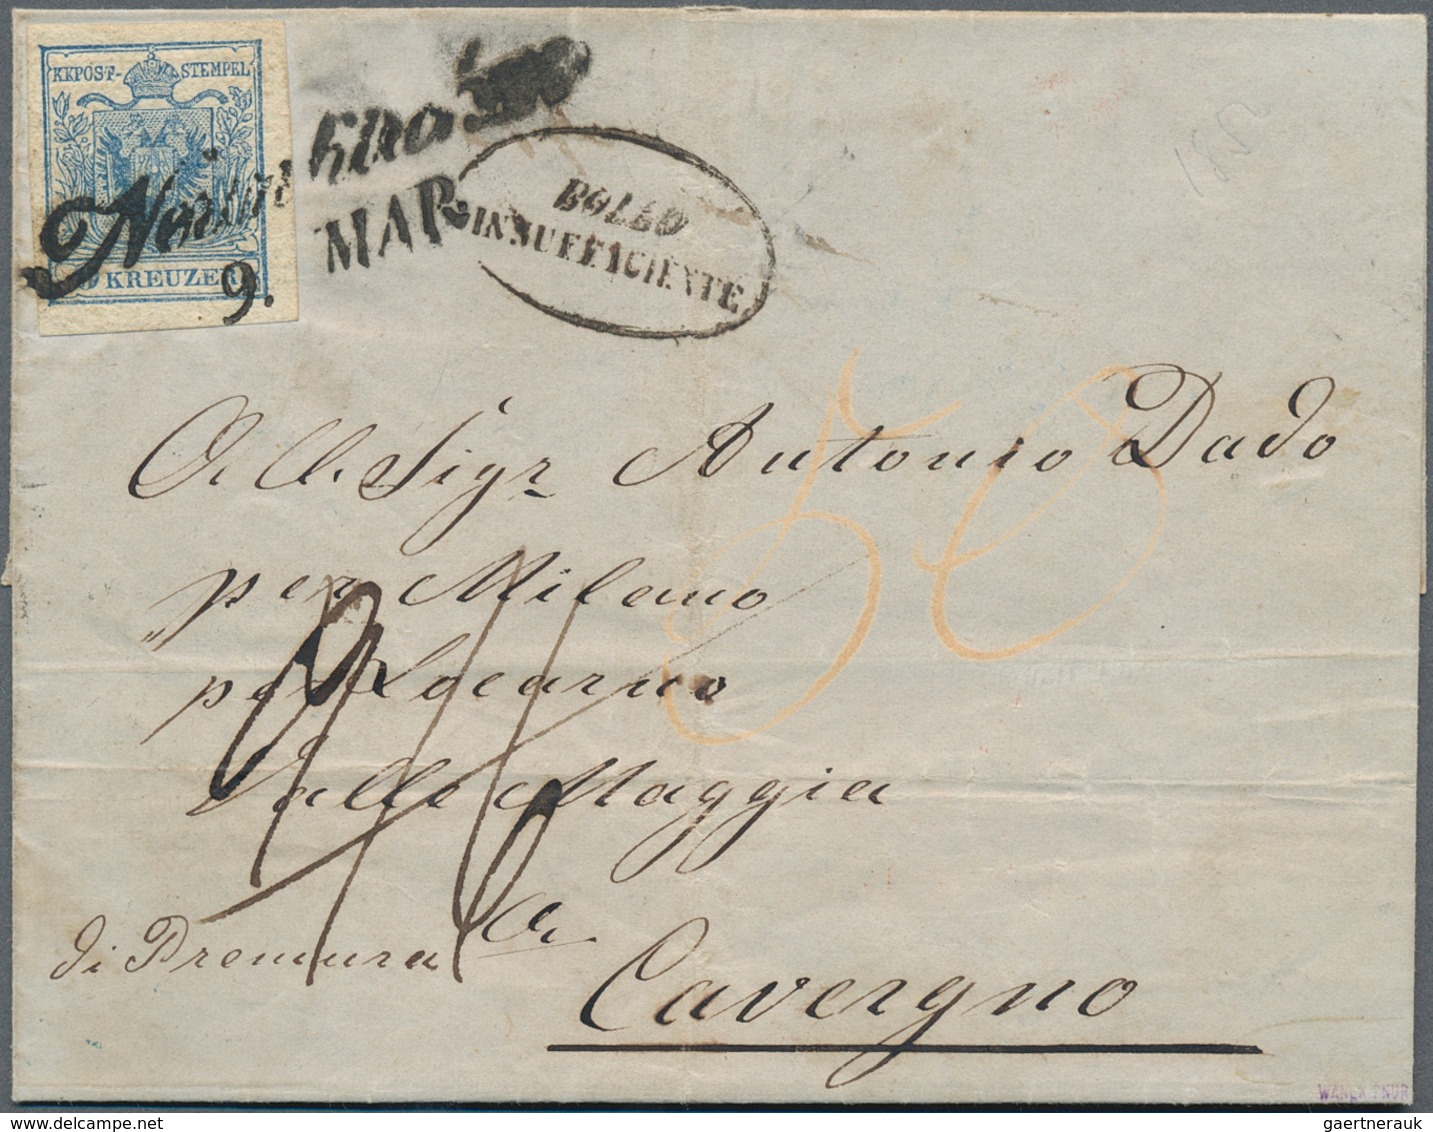 KKPOST-STEMPEL
9 KREUZER
9. MAR.
BOLLO
INSUFFICIENTE
1852
50
All. Sigr Antonio Dado
per Milano
per Locarno
Valle Maggia
a
Cavergno
di Premura
gaertnerauk